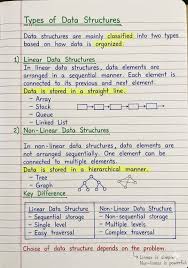 Types of Data Structures
Data structures are mainly classified into two types
based on how data is organized.
1) Linear Data Structures
In linear data structures, data elements are
arranged in a sequential manner. Each element is
connected to its previous and next element.
Data is stored in a straight line.
- Array
- Stack
- Queue
- Linked List
2) Non-Linear Data Structures
In non-linear data structures, data elements are
not arranged sequentially. One element can be
connected to multiple elements.
Data is stored in a hierarchical manner.
- Tree
- Graph
Key Difference
Linear Data Structure
Non-Linear Data Structure
- Sequential storage
- Non-sequential storage
- Single level
- Multiple levels
- Easy traversal
- Complex traversal
Choice of data structure depends on the problem.
Linear is simple.
Non-linear is powerful